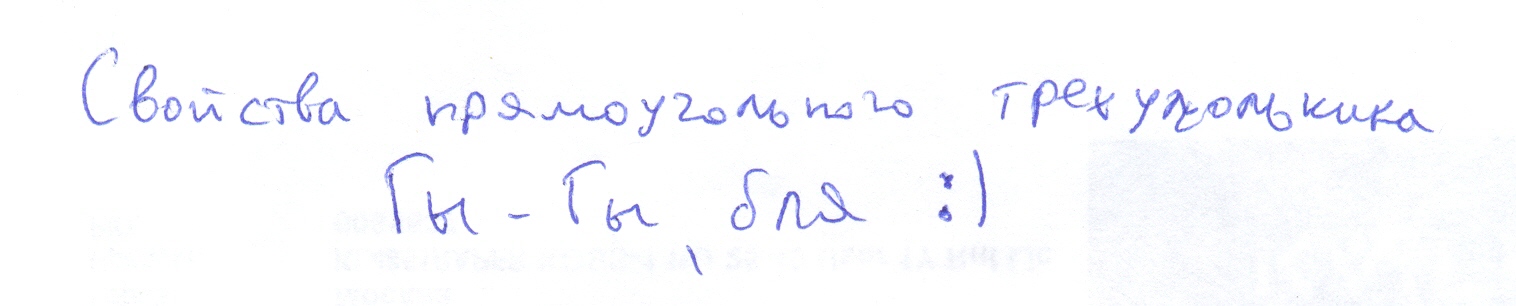 Свойства прямоугольного трехугольника
Гы - Гы, бля :)